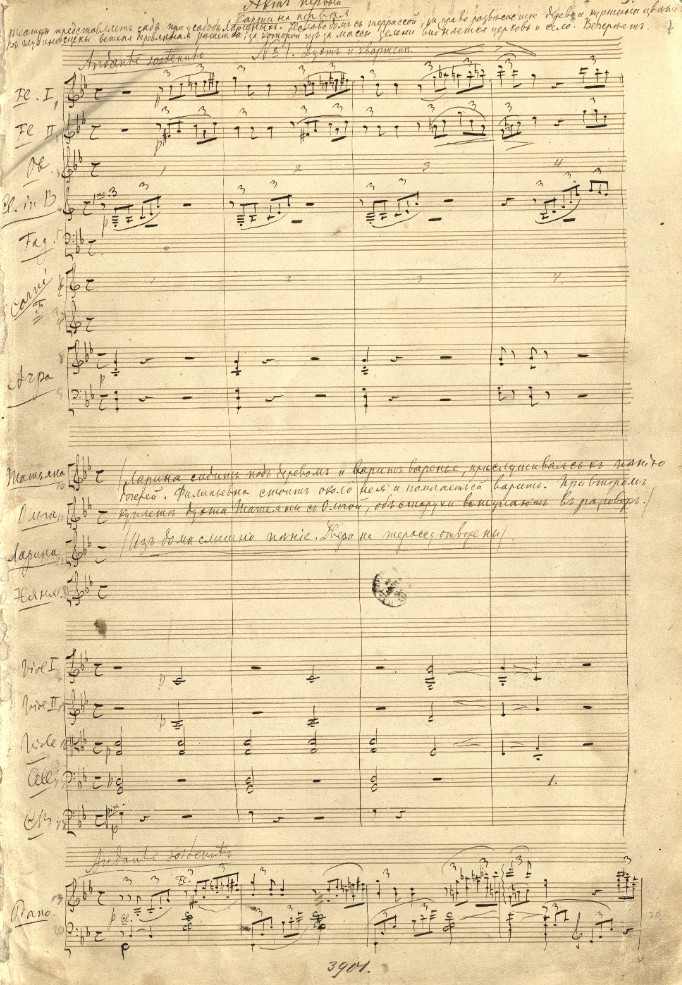 Актъ первый
Картина первая
Театръ представляетъ садъ при усадьбѣ Лариныхъ. Налѣво домъ съ террассой, направо развѣсистое дерево, куртины цвѣтовъ.
Въ глубинѣ сцены ветхая деревянная рѣшетка, за которой изъ за массы зелени виднѣется церковь и село. Вечерѣетъ.
7
Andante sostenuto
№ 1. Дуэтъ и квартетъ.
Fl. I
Fl II
Ob
1 2 3 4
Cl. in B
Fag.
Corni
F
1 2 3 4
Арфа
Татьяна
/Ларина сидитъ подъ деревомъ и варитъ варенье, прислушиваясь къ пѣнію
дочерей. Филипьевна стоитъ около нея и помогаетъ варить. При второмъ
Ольга
куплетѣ дуэта Татьяны съ Ольгой, обѣ старухи вступаютъ въ разговоръ./
Ларина
/Изъ дома слышно пѣніе. Дверь на террассу отворены/
Няня
Viol I
Viol II
Viole
Celli
CB
Andante sostenuto
Piano
20
3901.